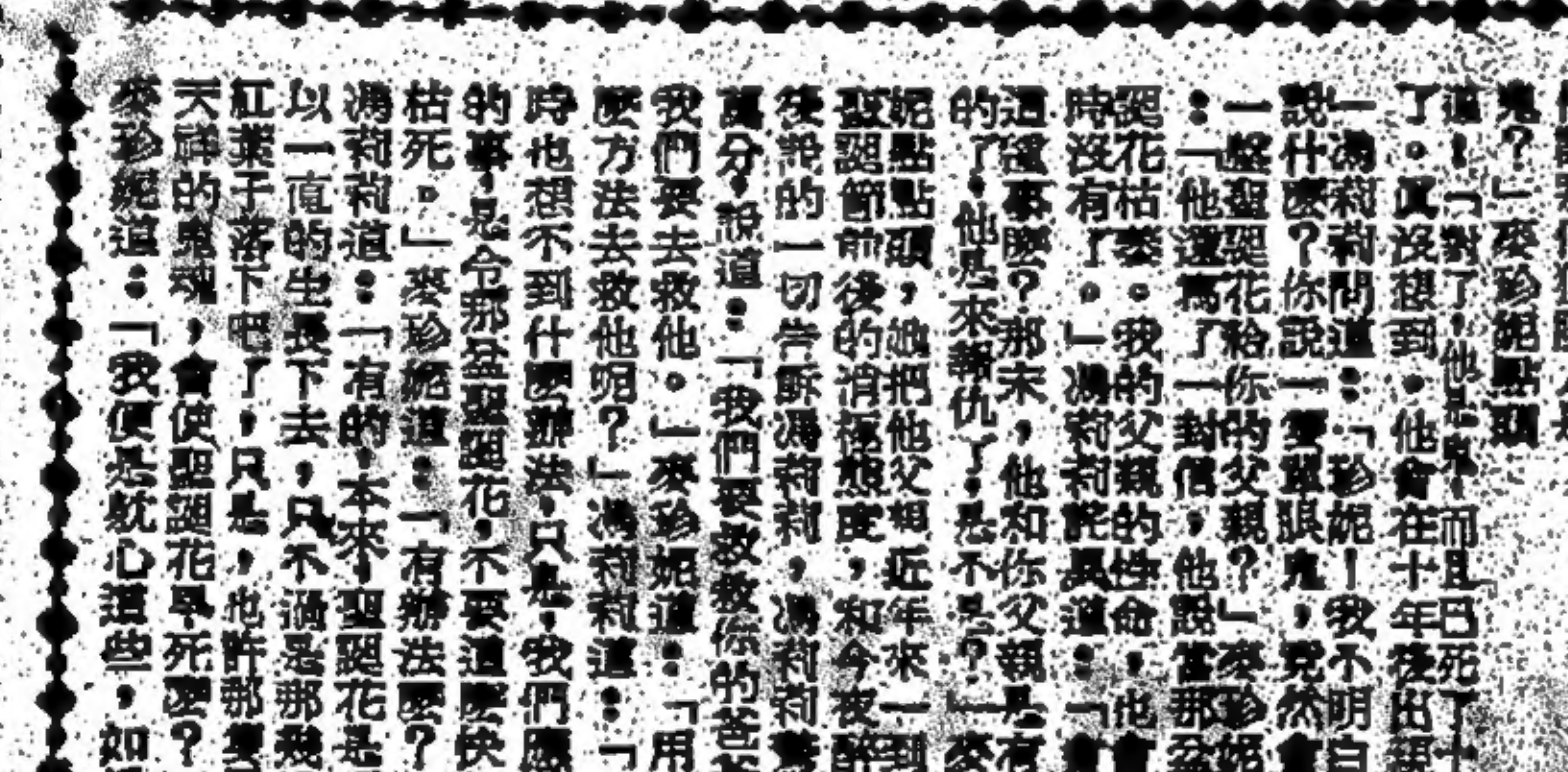 鬼？」麥珍妮點頭
道！「對了，他是鬼！而且已死了十
了。眞沒想到。他會在十年後出現
一馮莉莉問道：「珍妮！我不明白
說什麼？你說一雙鬼，竟然會
一盤聖誕花給你的父親？」麥珍妮
：「他還寫了一封信，他說當那盆
誕花枯萎。我的父親的性命，也會
時沒有了。」馮莉莉詫異道：「會
這種事麼？那末，他和你父親是有
的了，他是來報仇了，是不是？」麥
妮點點頭，她把他父親近年來一到
聖誕節前後的消極態度，和今夜醉
後說的一切告訴馮莉莉，馮莉莉驚
萬分，說道：「我們要救救你的爸爸
我們要去救他。」麥珍妮道：「用
麼方法去救他呢？」馮莉莉道：「
時也想不到什麼辦法，只是，我們應
的事，是令那盆聖誕花，不要這麼快
枯死。」麥珍妮道：「有辦法麼？
馮莉莉道：「有的，本來，聖誕花是
以一直的生長下去，只不過是那幾
紅葉子落下吧了，只是，也許那
天祥的鬼魂，會使聖誕花早死麼？
麥珍妮道：「我便是躭心這些，如